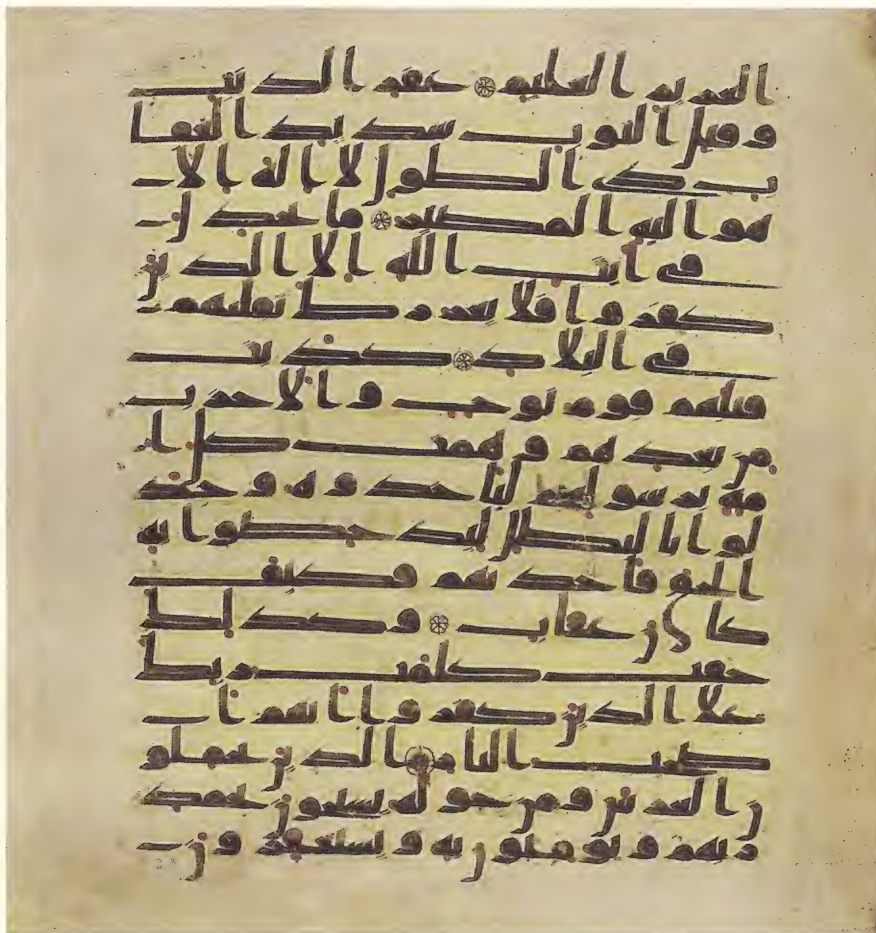 العزيز العليم غفر الذنب
وقبل التوب شديد العقا
ب ذي الطول لا اله الا
هو اليه المصير ما يجدل
في ايت الله الا الذين
كفروا فلا يغررك تقلبهم
في البلاد كذبت
قبلهم قوم نوح والاحزب
من بعدهم وهمت كل ا
مة برسولهم لياخذوه وجد
لوا بالبطل ليدحضوا به
الحق فاخذتهم فكيف
كان عقاب وكذلك
حقت كلمت ربك
على الذين كفروا انهم ا
صحب النار الذين يحملو
ن العرش ومن حوله يسبحون بحمد
ربهم ويومنون به ويستغفرون